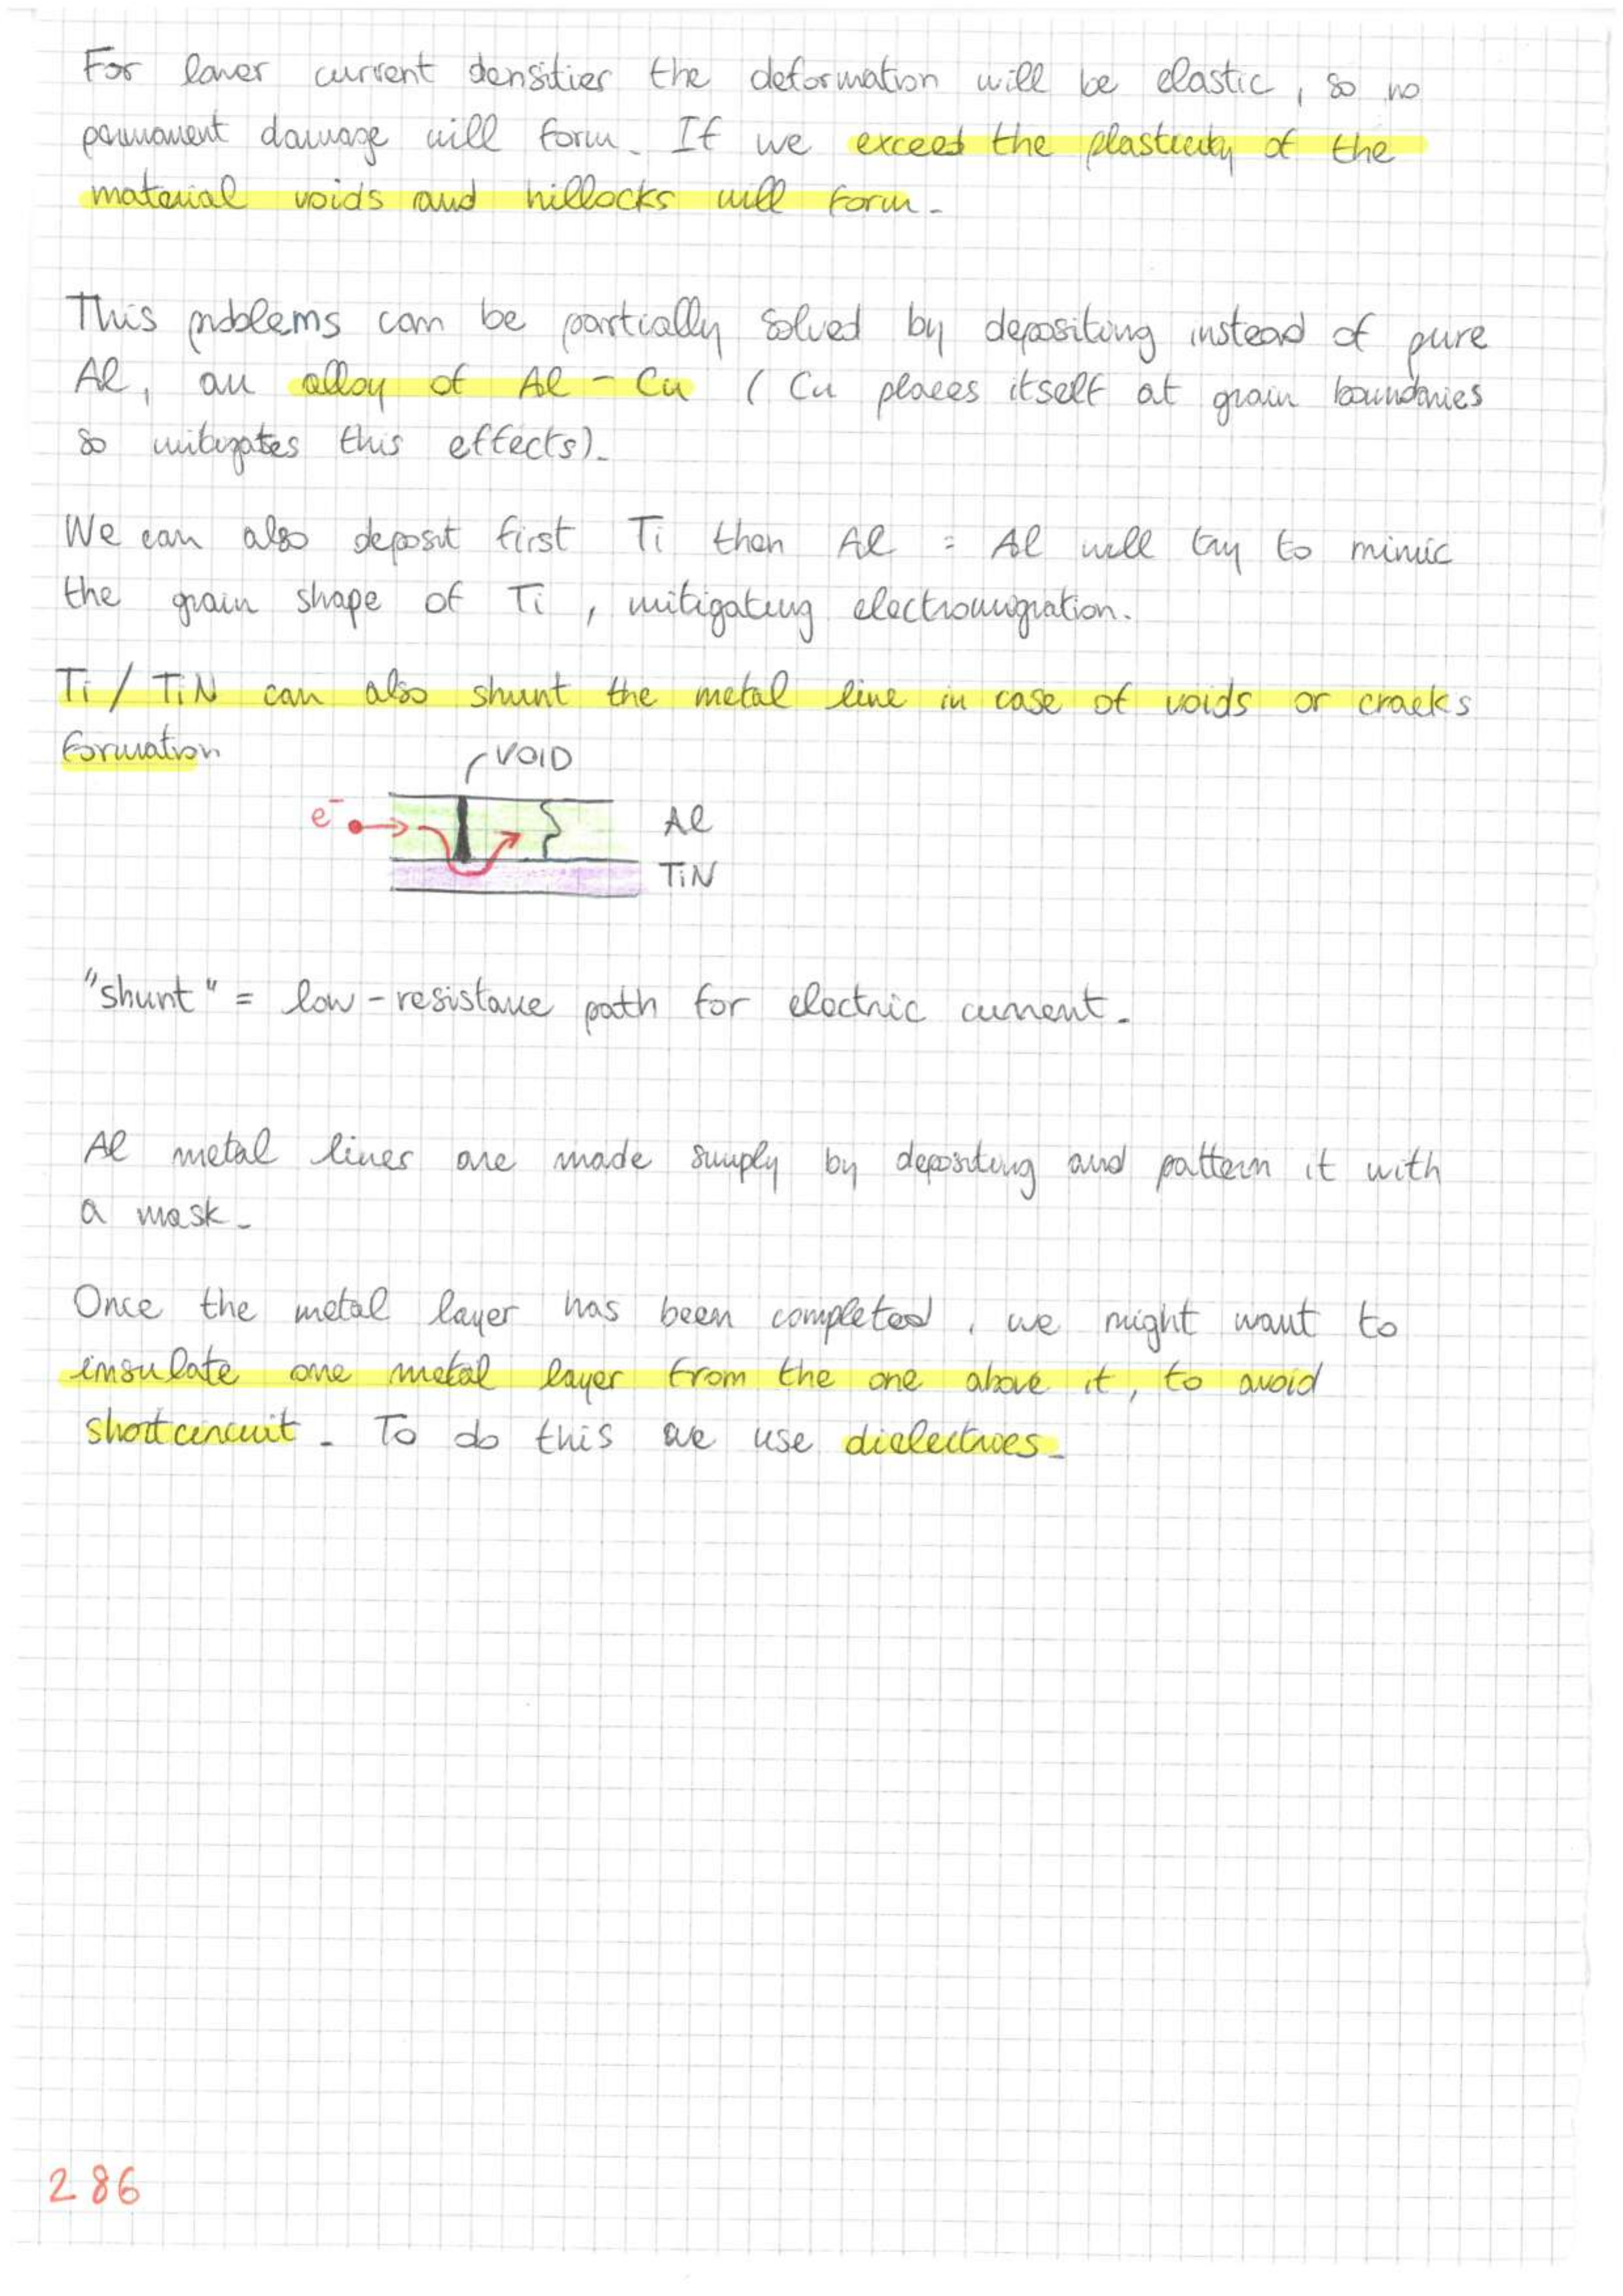 For lower current densities the deformation will be elastic, so no
permanent damage will form. If we exceed the plasticity of the
material voids and hillocks will form.
This problems can be partially solved by depositing instead of pure
Al, an alloy of Al - Cu ( Cu places itself at grain boundaries
so mitigates this effects).
We can also deposit first Ti then Al : Al will try to mimic
the grain shape of Ti , mitigating electromigration.
Ti / TiN can also shunt the metal line in case of voids or cracks
formation
VOID
e⁻
Al
TiN
"shunt" = low-resistance path for electric current.
Al metal lines are made simply by depositing and pattern it with
a mask.
Once the metal layer has been completed , we might want to
insulate one metal layer from the one above it, to avoid
shortcircuit . To do this we use dielectrics.
286